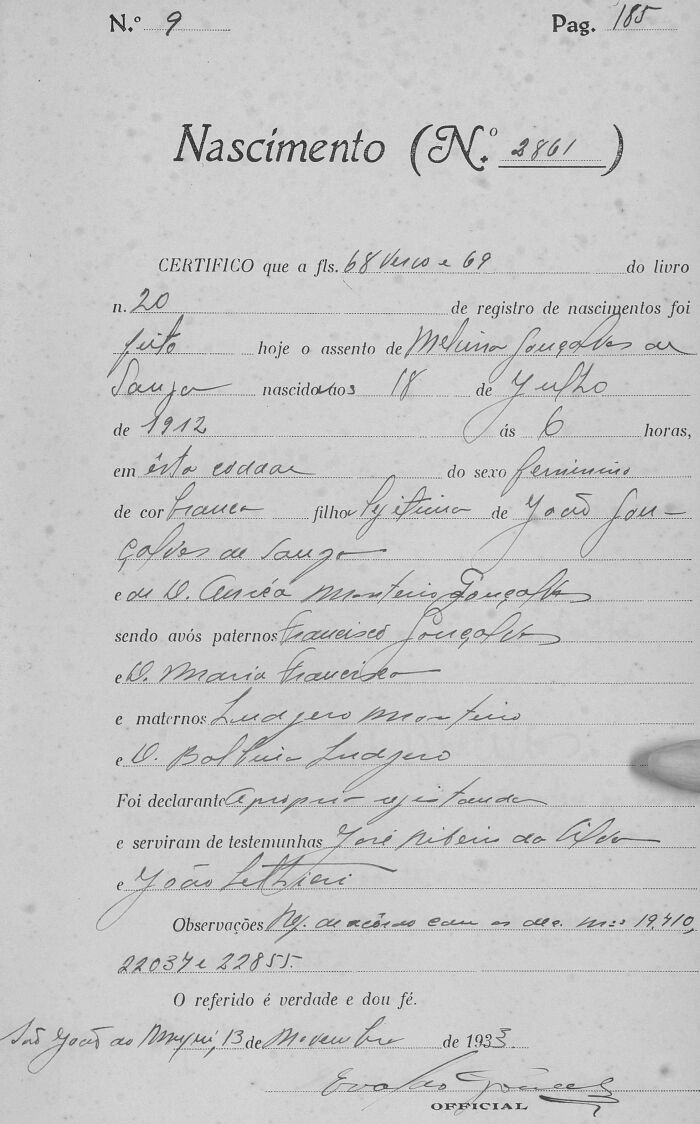 N.º 9 Pag. 185
Nascimento (N.º 2861)
CERTIFICO que a fls. 68 verso e 69 do livro
n. 20 de registro de nascimentos foi
feito hoje o assento de Gonçalves de
Souza nascida aos 18 de Julho
de 1912 ás 6 horas,
em esta cidade do sexo feminino
de cor branca filha legitima de João Gon-
çalves de Souza
e de D. Monteiro Gonçalves
sendo avós paternos Francisco Gonçalves
e D. Maria Francisca
e maternos Ludgero Monteiro
e D. Ludgero
Foi declarante a propria registanda
e serviram de testemunhas José Ribeiro da Silva
e João
Observações Reg. de acôrdo com os dec. nos 19.410,
22037 e 22855.
O referido é verdade e dou fé.
São João do 13 de Novembro de 1933.
OFFICIAL